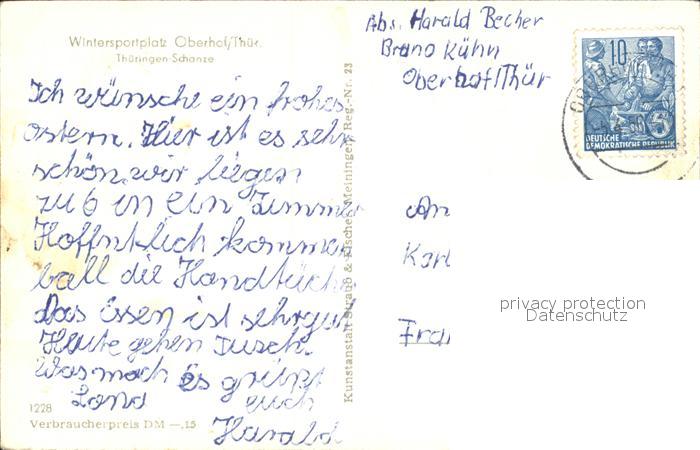 Wintersportplatz Oberhof/Thür.
Thüringen-Schanze
Ich wünsche ein frohes
Ostern. Hier ist es sehr
schön. wir liegen
zu 6 in ein Zimmer
Hoffntlich kommen
ball die Handtüche
Das Essen ist sehr gut
Heute gehen
Was mach es grüßt
euch
Harald
1228
Verbraucherpreis DM —,15
Kunstanstalt Straub & Fischer, Meiningen Reg.-Nr. 23
Abs. Harald Becher
Bruno Kühn
Oberhof/Thür
10
5
DEUTSCHE
DEMOKRATISCHE REPUBLIK
An
Karl
Frau
privacy protection
Datenschutz